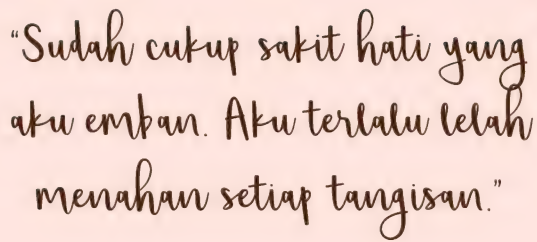 “Sudah cukup sakit hati yang
aku emban. Aku terlalu lelah
menahan setiap tangisan.”